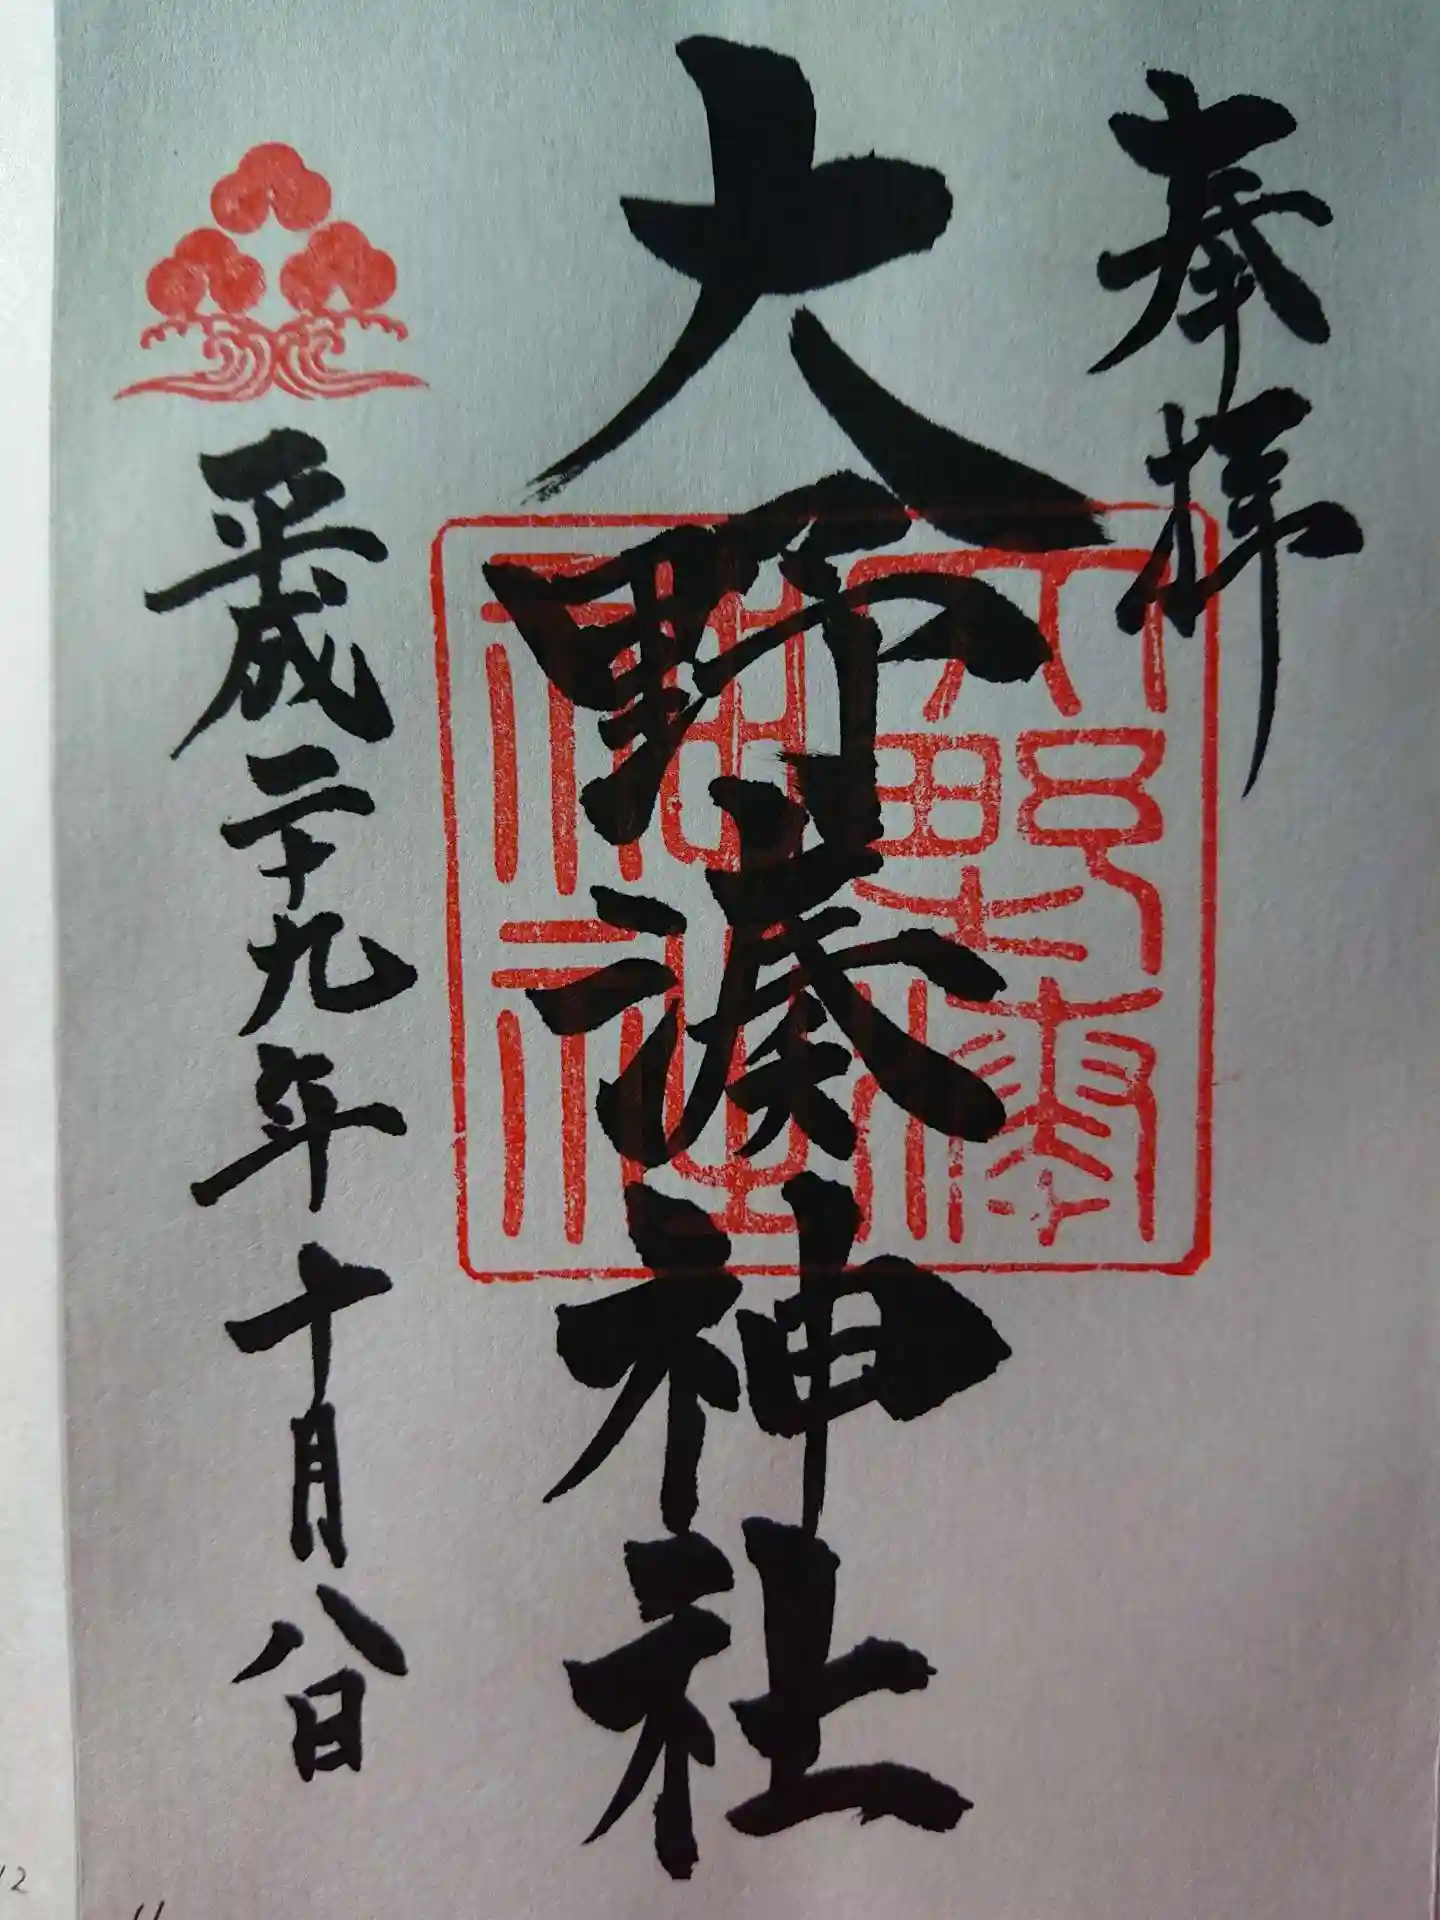 奉拝
大野湊神社
大野湊神社
平成二十九年十月八日
12
11